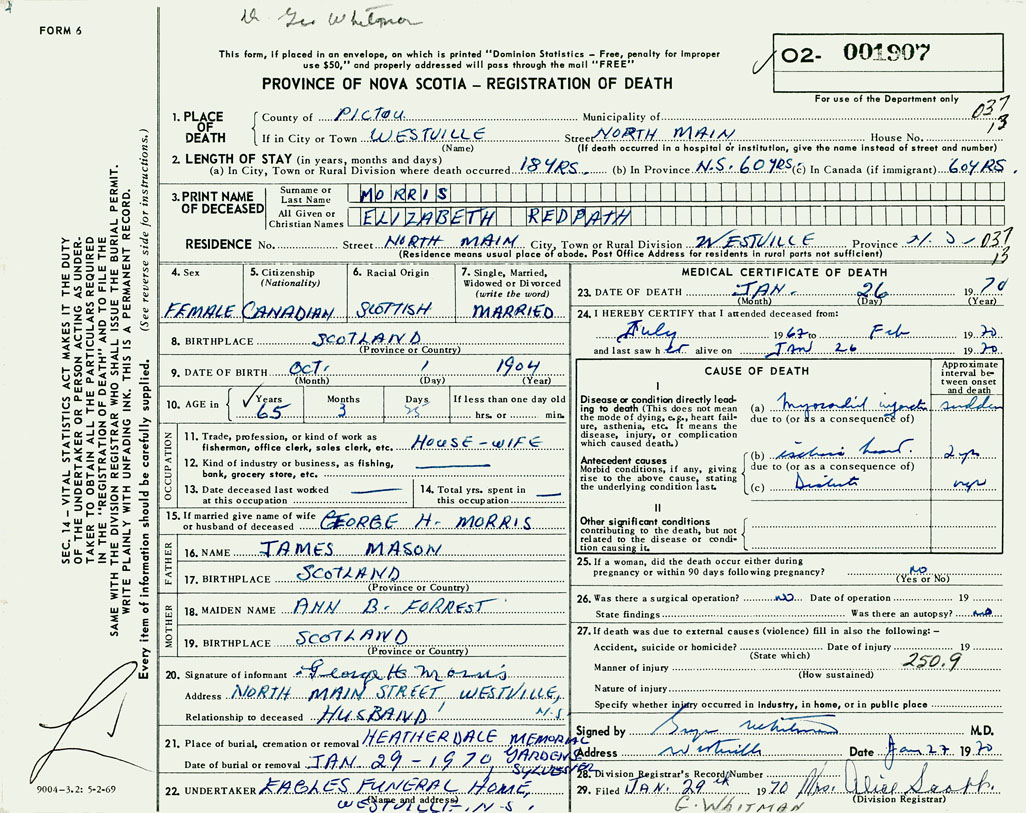 Dr Geo Whitman
FORM 6
This form, if placed in an envelope, on which is printed "Dominion Statistics – Free, penalty for improper
use $50," and properly addressed will pass through the mail "FREE"
PROVINCE OF NOVA SCOTIA – REGISTRATION OF DEATH
O2- 001907
For use of the Department only
1. PLACE OF DEATH
County of PICTOU Municipality of 037
If in City or Town WESTVILLE Street NORTH MAIN House No. 13
(Name) (If death occurred in a hospital or institution, give the name instead of street and number)
2. LENGTH OF STAY (in years, months and days)
(a) In City, Town or Rural Division where death occurred 18 YRS. (b) In Province N.S. 60 YRS. (c) In Canada (if immigrant) 60 YRS.
3. PRINT NAME OF DECEASED
Surname or Last Name MORRIS
All Given or Christian Names ELIZABETH REDPATH
RESIDENCE No. Street NORTH MAIN City, Town or Rural Division WESTVILLE Province N.S. 037
(Residence means usual place of abode. Post Office Address for residents in rural parts not sufficient) 13
4. Sex FEMALE
5. Citizenship (Nationality) CANADIAN
6. Racial Origin SCOTTISH
7. Single, Married, Widowed or Divorced (write the word) MARRIED
8. BIRTHPLACE SCOTLAND
(Province or Country)
9. DATE OF BIRTH OCT. 1 1904
(Month) (Day) (Year)
10. AGE in Years 65 Months 3 Days 25 If less than one day old hrs. or min.
OCCUPATION
11. Trade, profession, or kind of work as
fisherman, office clerk, sales clerk, etc. HOUSE-WIFE
12. Kind of industry or business, as fishing,
bank, grocery store, etc.
13. Date deceased last worked
at this occupation
14. Total yrs. spent in
this occupation
15. If married give name of wife
or husband of deceased GEORGE H. MORRIS
FATHER
16. NAME JAMES MASON
17. BIRTHPLACE SCOTLAND
(Province or Country)
MOTHER
18. MAIDEN NAME ANN B. FORREST
19. BIRTHPLACE SCOTLAND
(Province or Country)
20. Signature of informant George H Morris
Address NORTH MAIN STREET WESTVILLE, N.S.
Relationship to deceased HUSBAND
21. Place of burial, cremation or removal HEATHERDALE MEMORIAL GARDENS SYLVESTER
Date of burial or removal JAN. 29-1970
22. UNDERTAKER EAGLES FUNERAL HOME,
(Name and address) WESTVILLE, N.S.
MEDICAL CERTIFICATE OF DEATH
23. DATE OF DEATH JAN. 26 1970
(Month) (Day) (Year)
24. I HEREBY CERTIFY that I attended deceased from:
July 1967 to Feb 1970
and last saw her alive on JAN 26 1970
CAUSE OF DEATH
Approximate interval between onset and death
I
Disease or condition directly leading to death (This does not mean the mode of dying, e.g., heart failure, asthenia, etc. It means the disease, injury, or complication which caused death.)
(a) Myocardial infarct sudden
due to (or as a consequence of)
Antecedent causes
Morbid conditions, if any, giving rise to the above cause, stating the underlying condition last.
(b) ischemic heart. 2 yr
due to (or as a consequence of)
(c) Diabetes yrs
II
Other significant conditions
contributing to the death, but not related to the disease or condition causing it.
25. If a woman, did the death occur either during
pregnancy or within 90 days following pregnancy? NO
(Yes or No)
26. Was there a surgical operation? NO Date of operation 19
State findings Was there an autopsy? NO
27. If death was due to external causes (violence) fill in also the following: –
Accident, suicide or homicide? Date of injury 19
(State which)
250.9
Manner of injury
(How sustained)
Nature of injury
Specify whether injury occurred in industry, in home, or in public place
Signed by George Whitman M.D.
Address Westville Date Jan 27 1970
28. Division Registrar's Record Number
29. Filed JAN. 29th 1970 Mrs. Alice Scott.
(Division Registrar)
G. WHITMAN
SEC. 14 – VITAL STATISTICS ACT MAKES IT THE DUTY
OF THE UNDERTAKER OR PERSON ACTING AS UNDER-
TAKER TO OBTAIN ALL THE PARTICULARS REQUIRED
IN THE "REGISTRATION OF DEATH" AND TO FILE THE
SAME WITH THE DIVISION REGISTRAR WHO SHALL ISSUE THE BURIAL PERMIT.
WRITE PLAINLY WITH UNFADING INK. THIS IS A PERMANENT RECORD.
Every item of information should be carefully supplied. (See reverse side for instructions.)
9004-3.2: 5-2-69